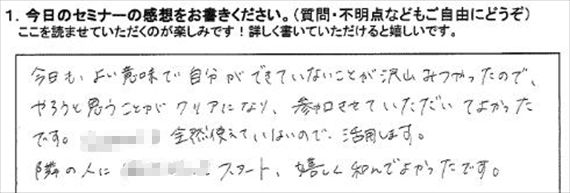 1. 今日のセミナーの感想をお書きください。（質問・不明点などもご自由にどうぞ）
ここを読ませていただくのが楽しみです！詳しく書いていただけると嬉しいです。
今日も、よい意味で自分ができていないことが沢山みつかったので、
やろうと思うことがクリアになり、参加させていただいてよかった
です。 全然使えていないので、活用します。
隣の人に スタート、嬉しく和んでよかったです。